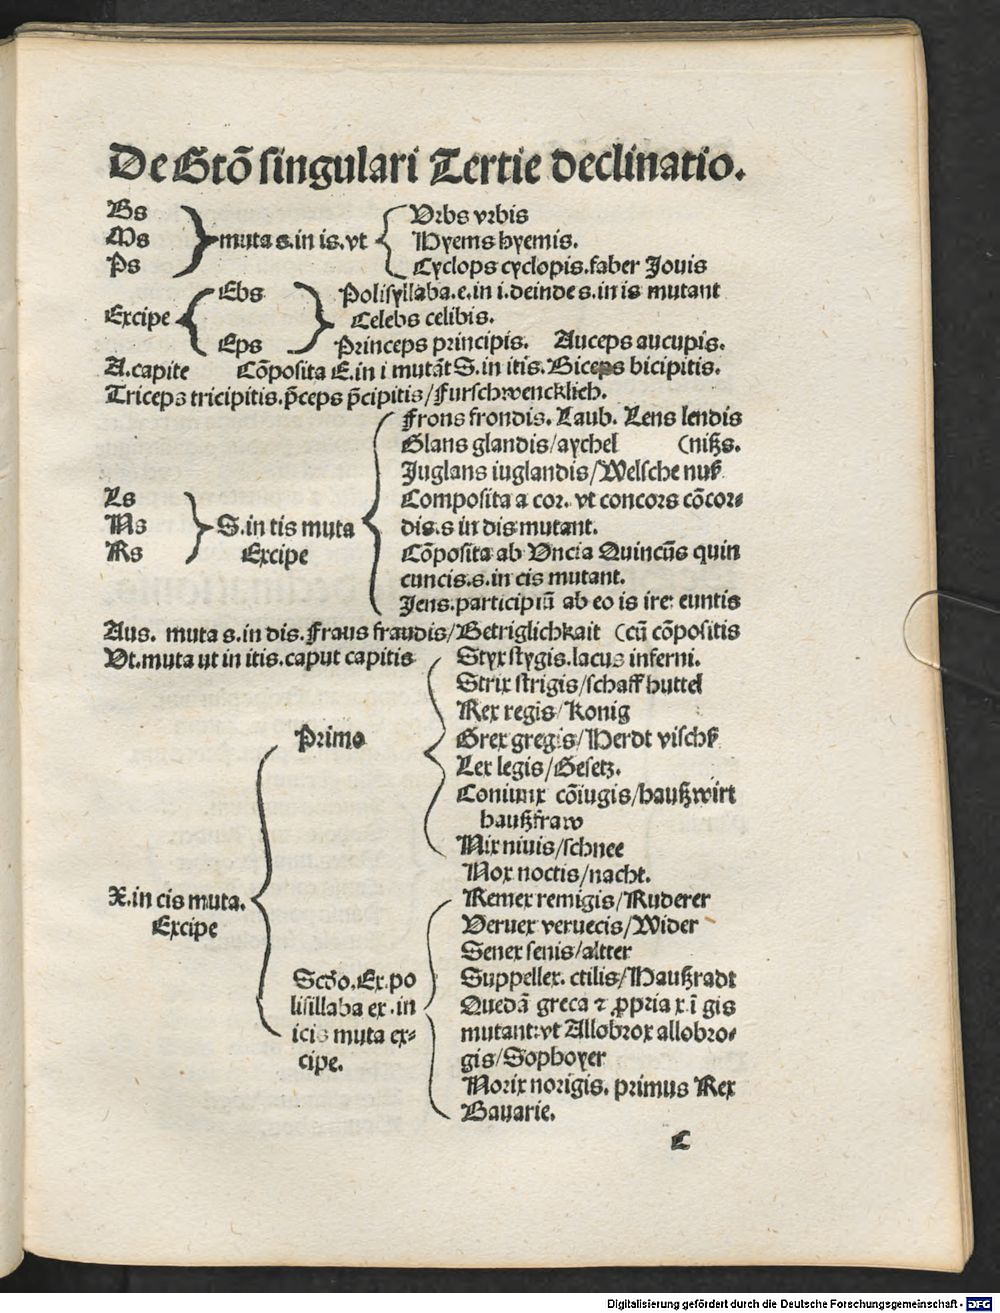 De Gtõ singulari Tertie declinatio.
Bs
Ms
Ps
muta s. in is. vt
Vrbs vrbis
Hyems hyemis.
Cyclops cyclopis. faber Jouis
Excipe
Ebs
Eps
Polisyllaba. e. in i. deinde s. in is mutant
Celebs celibis.
Princeps principis. Auceps aucupis.
A. capite Cõposita E. in i mutãt S. in itis. Biceps bicipitis.
Triceps tricipitis. p̄ceps p̄cipitis/Furschwencklich.
Ls
Ns
Rs
S. in tis muta
Excipe
Frons frondis. Laub. Lens lendis
Glans glandis/aychel (nißs.
Juglans iuglandis/Welsche nuß
Composita a cor. vt concors cõcor-
dis. s in dis mutant.
Cõposita ab Vncia Quincũs quin
cuncis. s. in cis mutant.
Jens. participiũ ab eo is ire: euntis
Aus. muta s. in dis. Fraus fraudis/Betriglichkait (cũ cõpositis
Vt. muta ut in itis. caput capitis
X. in cis muta.
Excipe
Primo
Styx stygis. lacus inferni.
Strix strigis/schaff huttel
Rex regis/Konig
Grex gregis/Herdt vischß
Lex legis/Gesetz.
Coniunx cõiugis/haußwirt
haußfraw
Nix niuis/schnee
Nox noctis/nacht.
Scdõ. Ex. po
lisillaba ex. in
icis muta ex-
cipe.
Remex remigis/Ruderer
Veruex veruecis/Wider
Senex senis/altter
Suppellex. ctilis/Haußradt
Quedã greca ⁊ ꝓpria x ĩ gis
mutant: vt Allobrox allobro-
gis/Sophoyer
Norix norigis. primus Rex
Bauarie.
C
Digitalisierung gefördert durch die Deutsche Forschungsgemeinschaft - DFG